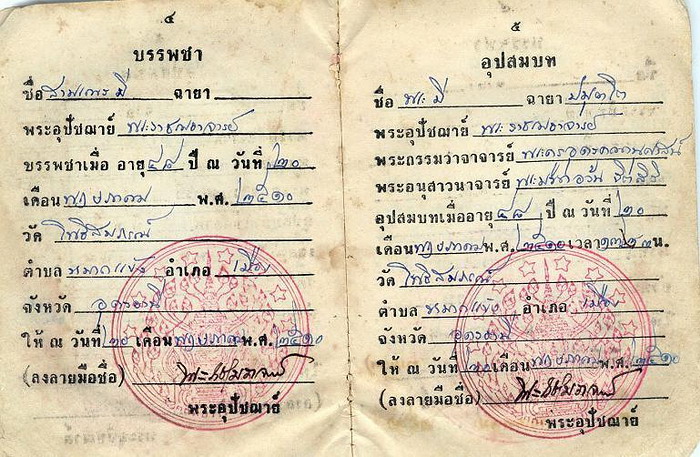 ๔
บรรพชา
ชื่อ สามเณร มี ฉายา
พระอุปัชฌาย์
บรรพชาเมื่อ อายุ ๔๘ ปี ณ วันที่ ๒๐
เดือน พฤษภาคม พ.ศ. ๒๕๑๐
วัด โพธิสมภรณ์
ตำบล หมากแข้ง อำเภอ เมือง
จังหวัด อุดรธานี
ให้ ณ วันที่ ๒๐ เดือน พฤษภาคม พ.ศ. ๒๕๑๐
(ลงลายมือชื่อ)
พระอุปัชฌาย์
๕
อุปสมบท
ชื่อ พระ มี ฉายา
พระอุปัชฌาย์
พระกรรมวาจาจารย์
พระอนุสาวนาจารย์
อุปสมบทเมื่ออายุ ๔๘ ปี ณ วันที่ ๒๐
เดือน พฤษภาคม พ.ศ. ๒๕๑๐ เวลา น.
วัด โพธิสมภรณ์
ตำบล หมากแข้ง อำเภอ เมือง
จังหวัด อุดรธานี
ให้ ณ วันที่ ๒๐ เดือน พฤษภาคม พ.ศ. ๒๕๑๐
(ลงลายมือชื่อ)
พระอุปัชฌาย์